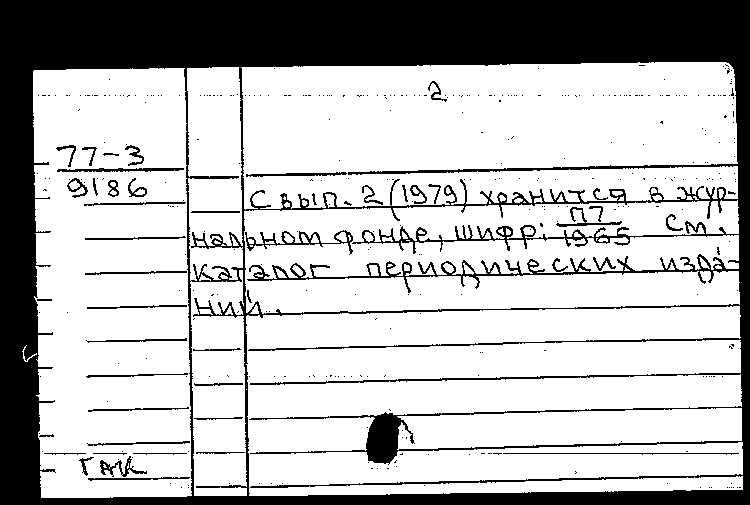 2
77-3
9186
С вып. 2 (1979) хранится в жур-
нальном фонде, шифр: П7/1965 См.
каталог периодических изда-
ний.
ГАК